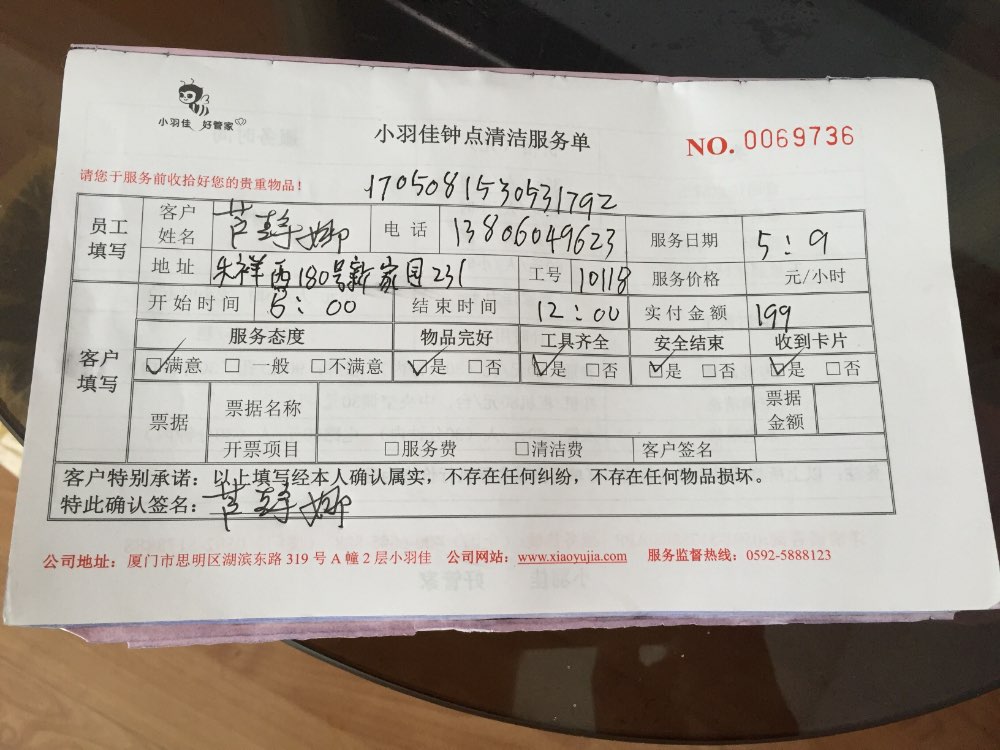 小羽佳 好管家
小羽佳钟点清洁服务单
NO. 0069736
请您于服务前收拾好您的贵重物品！
1705081530531792
员工填写 客户姓名 芦静娜 电话 13806049623 服务日期 5：9
地址 朱祥西180号新家园231 工号 10118 服务价格 元/小时
客户填写 开始时间 5：00 结束时间 12：00 实付金额 199
服务态度 物品完好 工具齐全 安全结束 收到卡片
☑满意 □一般 □不满意 ☑是 □否 ☑是 □否 ☑是 □否 ☑是 □否
票据 票据名称 票据金额
开票项目 □服务费 □清洁费 客户签名
客户特别承诺：以上填写经本人确认属实，不存在任何纠纷，不存在任何物品损坏。
特此确认签名：芦静娜
公司地址：厦门市思明区湖滨东路 319 号 A 幢 2 层小羽佳 公司网站：www.xiaoyujia.com 服务监督热线：0592-5888123